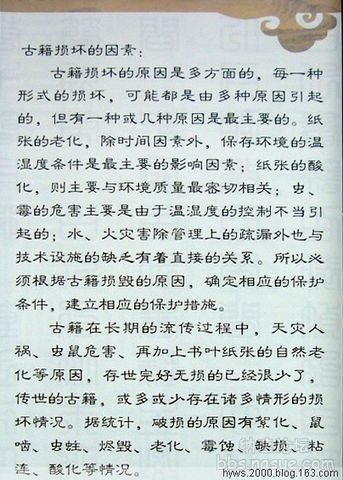 古籍损坏的因素：
古籍损坏的原因是多方面的，每一种
形式的损坏，可能都是由多种原因引起
的，但有一种或几种原因是最主要的。纸
张的老化，除时间因素外，保存环境的温
湿度条件是最主要的影响因素；纸张的酸
化，则主要与环境质量最密切相关；虫、
霉的危害主要是由于温湿度的控制不当引
起的；水、火灾害除管理上的疏漏外也与
技术设施的缺乏有着直接的关系。所以必
须根据古籍损毁的原因，确定相应的保护
条件，建立相应的保护措施。
古籍在长期的流传过程中，天灾人
祸、虫鼠危害、再加上书叶纸张的自然老
化等原因，存世完好无损的已经很少了，
传世的古籍，或多或少存在诸多情形的损
坏情况。据统计，破损的原因有絮化、鼠
啮、虫蛀、烬毁、老化、霉蚀、缺损、粘
连、酸化等情况。
bbs.nasue.com
hyws.2000.blog.163.com